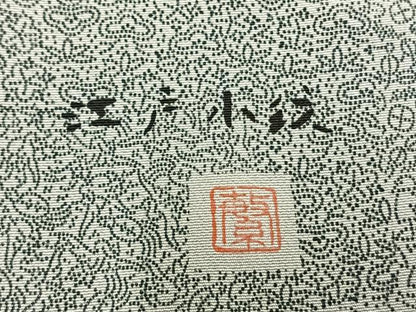 江戸小紋